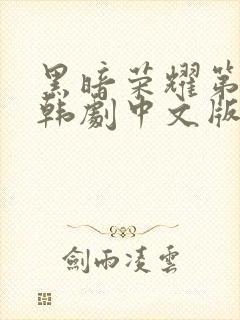 黑暗荣耀第
韩劇中文版
剑雨凌雲